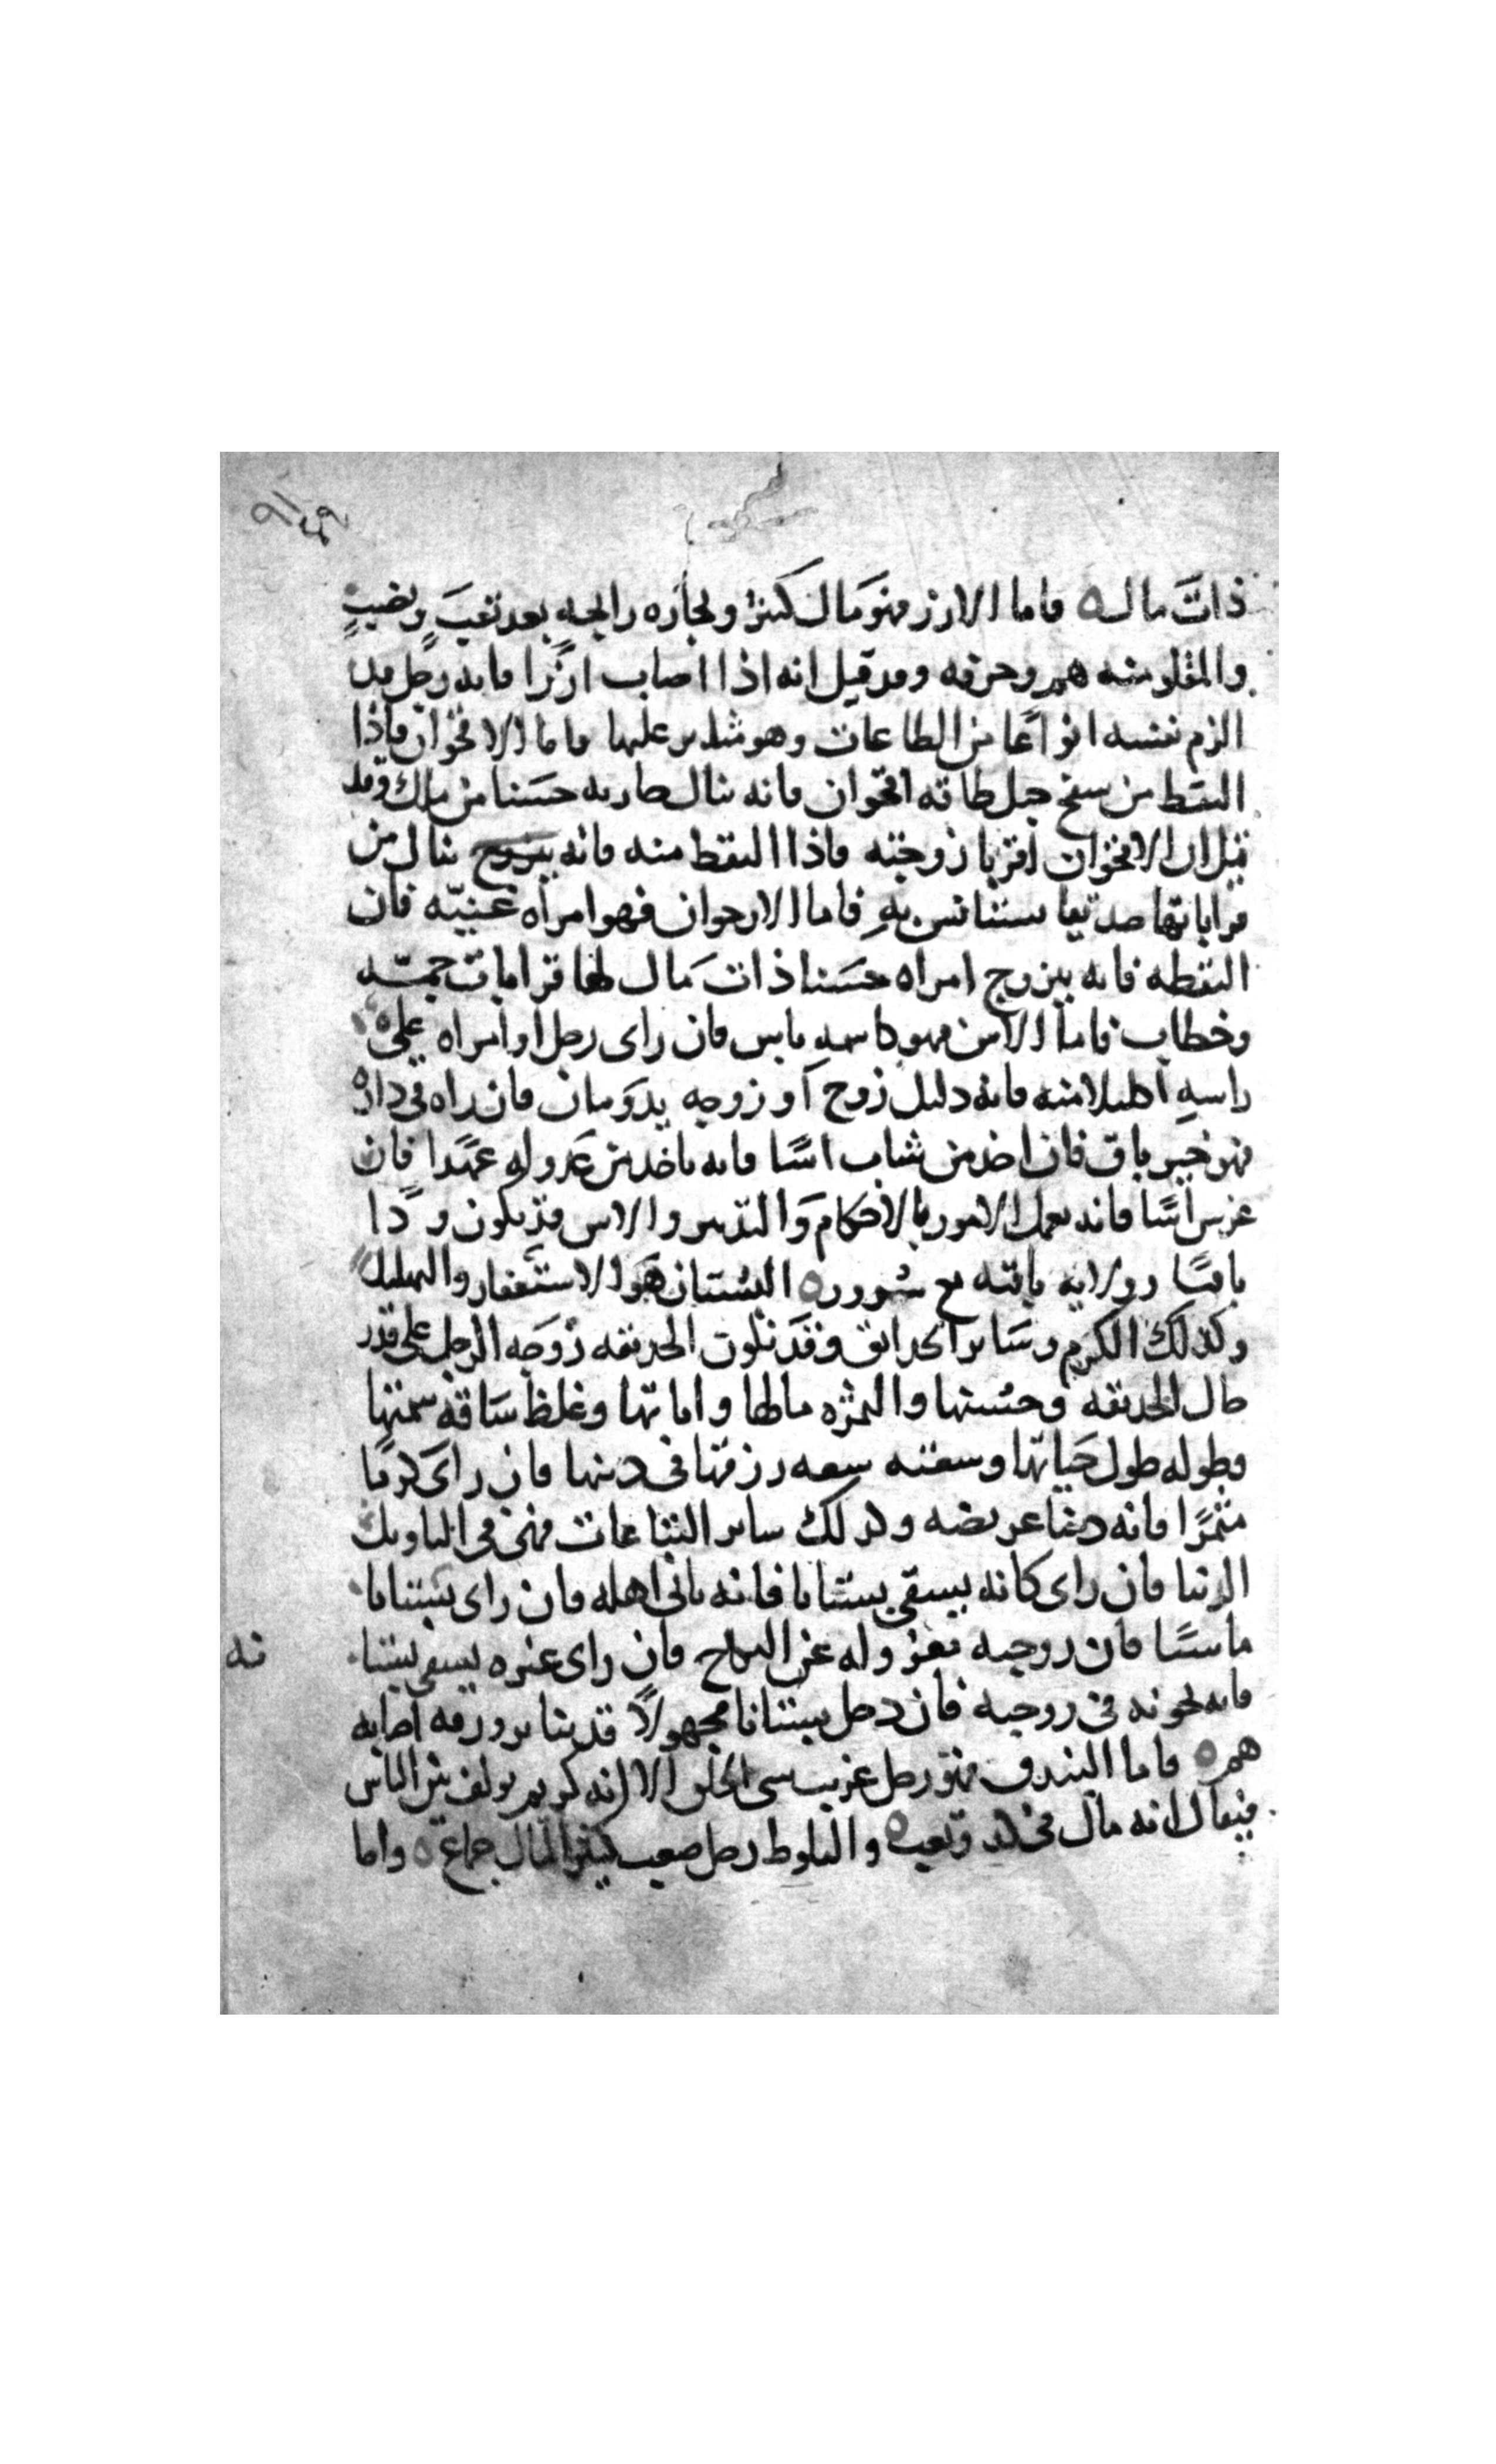 ذات مال ه فاما الارز فهو مال كثير وتجاره رابحه بعد تعب ونصب
والمقلو منه هم وحرقه وقد قيل انه اذا اصاب ارزا فانه رجل قد
الزم نفسه انواعا من الطاعات وهو شديد عليها فاما الاقحوان فاذا
التقط من سفح جبل طاقه اقحوان فانه ينال جاريه حسنا من ملك وقد
قيل ان الاقحوان اقربا زوجته فاذا التقط منه فانه يتزوج ينال من
قراباتها صديقا يستانس به فاما الارجوان فهو امراه غنيه فان
التقطه فانه يتزوج امراه حسنا ذات مال لها قرابات جمه
وخطاب فاما الاس فهو كاسمه ياس فان راى رجل او امراه على
راسه اكليلا منه فانه دليل زوج او زوجه يدومان فان راه في داره
فهو خير باق فان اخذ من شاب اسا فانه ياخذ من عدو له عهدا فان
غرس اسا فانه يعمل الامور بالاحكام والتدبير والاس قد يكون ودا
باقيا وولايه باقيه مع سرور ه البستان هو الاستغفار والتهليل
وكذلك الكرم وساير الحدايق وقد تكون الحديقه زوجه الرجل على قدر
حال الحديقه وحسنها والثمره مالها واماتها وغلظ ساقه سمنها
وطوله طول حياتها وسعته سعه رزقها في دينها فان راى كرما
مثمرا فانه دنيا عريضه وكذلك ساير النباتات فهي في التاويل
الدنيا فان راى كانه يسقي بستانا فانه ياتي اهله فان راى بستانا
يابسا فان زوجته معزوله عن النكاح فان راى غيره يسقي بستا
نه
فانه يخونه في زوجته فان دخل بستانا مجهولا قد يناثر ورقه اصابه
هم ه فاما البندق فهو رجل غريب سخي الخلق الا انه كريم يولف بين الناس
فيقال انه مال في كد وتعب ه والبلوط رجل صعب كثير المال جماع ه واما